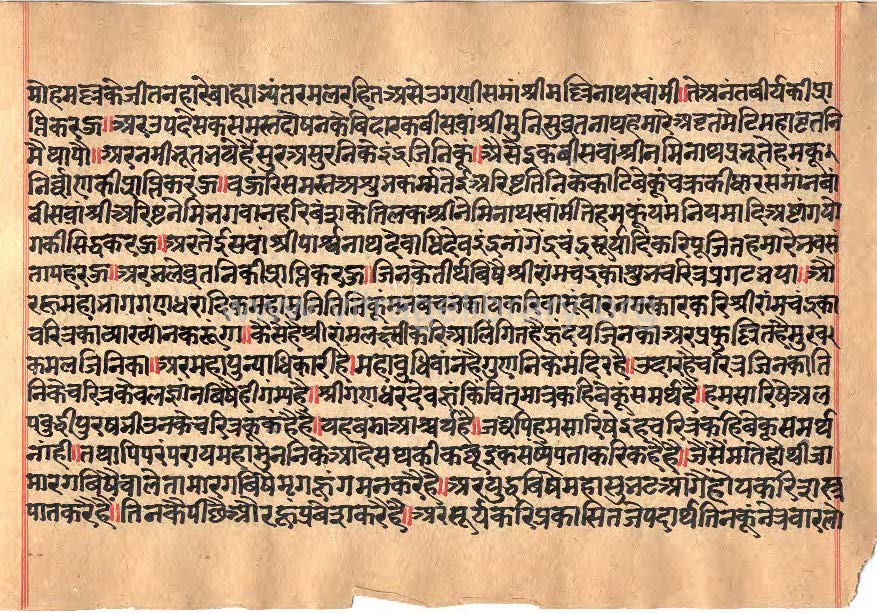 मोहमल्लके जीतनहारे बाह्याभ्यंतरमलरहित असे त्रगणीसमां श्रीमल्लिनाथस्वांमी॥ ते अनंतवीर्यकी प्रा
प्तिकरऊ॥ अर उपदेसक समस्तदोषनकै विदारक वीसवां श्रीमुनिसुव्रतनाथ हमारे अष्टतमेटि महाव्रतनि
मै थापो॥ अर नमीभूत भये हैं सुर असुरनिके इंद्र जिनिकूं॥ असै इकवीसवां श्रीनमिनाथप्रभू ते हमकूं
निर्वाणकी प्राप्तिकरऊ॥ बऊरि समस्त अशुभकर्म तेई अरिष्ट तिनिके काटिबेकूं चक्रकी धारसमांन बा
वीसवां श्रीअरिष्टनेमि भगवान हरिवंशके तिलक श्रीनेमिनाथस्वांमी ते हमकूं यमनियमादि अष्टांगयो
गकी सिद्धकरऊ॥ अर तेईसवां श्रीपार्श्वनाथ देवाधिदेव इंद्र नागेंद्र चंद्र सूर्यादिकरि पूजित हमारे भवसं
तापहरऊ॥ अर भलेव्रतनिकी प्राप्तिकरऊ॥ जिनके तीर्थविषै श्रीरांमचंद्रका शुभचरित्र प्रगट भया॥ औ
रऊ महाभाग गणधरादिक महामुनि तिनिकूं मन वचन काय करि वारंवार नमस्कार करि श्रीरांमचंद्रका
चरित्रका व्याख्यांन करूंगा॥ कैसे है श्रीरांम लक्ष्मीकरि आलिंगित है ह्रदय जिनका अर प्रफुल्लित है मुखर
कमल जिनिका॥ अर महापुन्याधिकारी है॥ महाबुधिवांन है गुणनिके मंदिर है॥ उदार है चरित्र जिनका ति
निकै चरित्र केवलज्ञानविषै ही गम्य है॥ श्रीगणधरदेव किंचितमात्र कहिबेकू समर्थ है॥ हमसारिषे अल
पबुद्धी पुरष भी उनके चरित्रकू कहै है॥ यह बडा आश्चर्य है॥ जद्यपि हमसारिषे इह चरित्र कहिबेकू समर्थ
नांही॥ तथापि परंपराय महामुननिके आदेस थकी कछुइक सष्षेपता करि कहै है॥ जैसे माते हाथी जा
मारगविषै चाले ता मारगविषै मृगहूं गमन करै है॥ अर युद्धविषै महासुभट आगे होय करि शस्त्र
पात करै है॥ तिनकै पीछै औरहू प्रवेश करै है॥ अर सूर्य करि प्रकासित जे पदार्थ तिनकूं नेत्रवारेलो